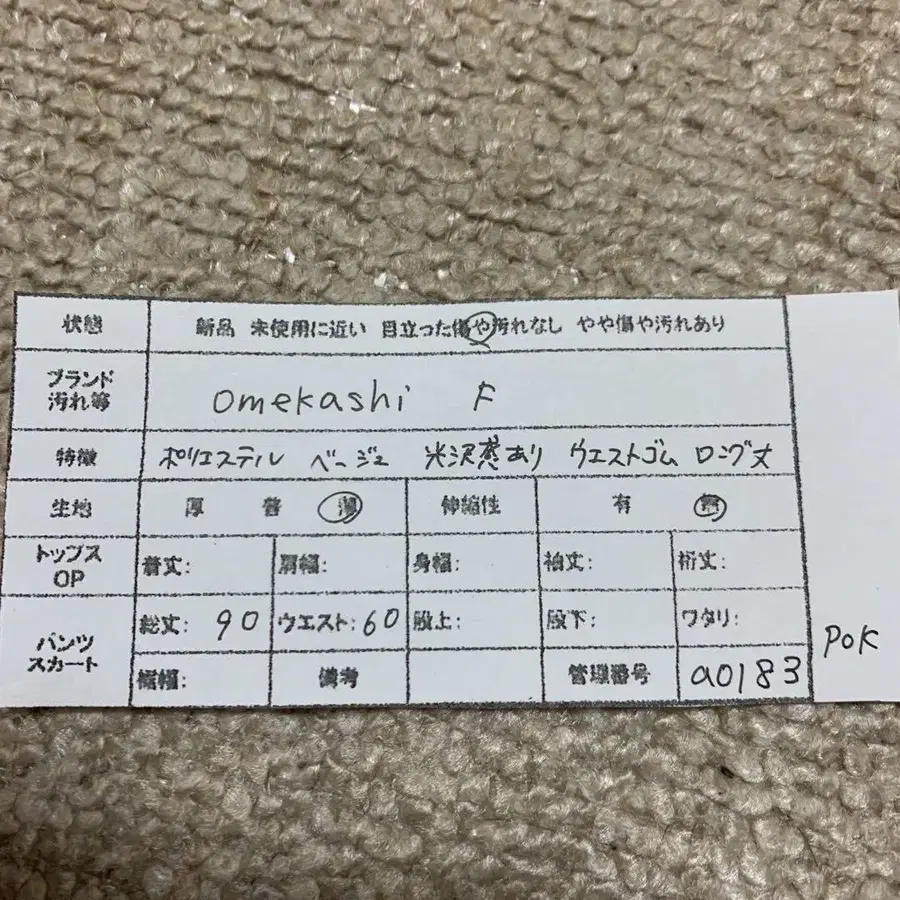 状態 新品 未使用に近い 目立った傷や汚れなし やや傷や汚れあり
ブランド
汚れ等 omekashi F
特徴 ポリエステル ベージュ 光沢感あり ウエストゴム ロング丈
生地 厚 普 薄 伸縮性 有 無
トップス
OP 着丈: 肩幅: 身幅: 袖丈: 裄丈:
パンツ
スカート 総丈: 90 ウエスト: 60 股上: 股下: ワタリ:
裾幅: 備考 管理番号 a0183
POK